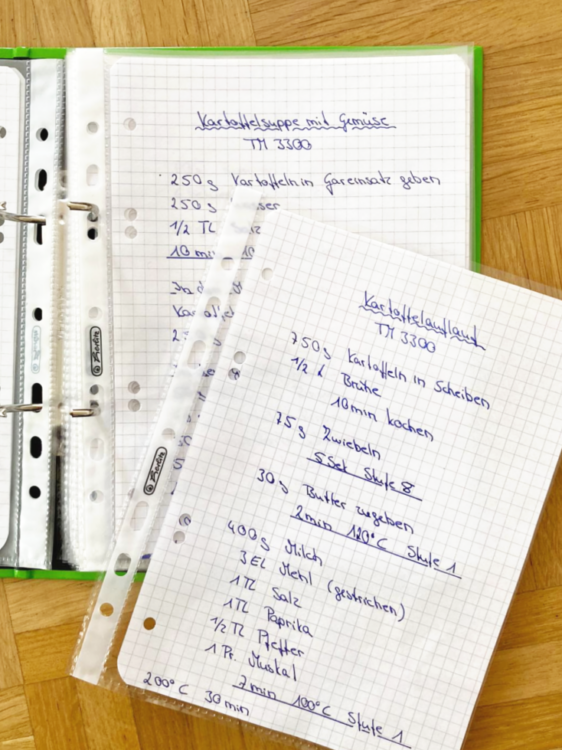 Kartoffelsuppe mit Gemüse
TM 3300
250g Kartoffeln in Gareinsatz geben
250g
1/2 TL
10 min
Herlitz
Kartoffelauflauf
TM 3300
750g Kartoffeln in Scheiben
1/2 L Brühe
10min kochen
75g Zwiebeln
5 Sek Stufe 8
30g Butter zugeben
2min 120°C Stufe 1
400g Milch
3EL Mehl (gestrichen)
1TL Salz
1TL Paprika
1/2 TL Pfeffer
1 Pr. Muskat
7min 100°C Stufe 1
200°C 30 min
Herlitz